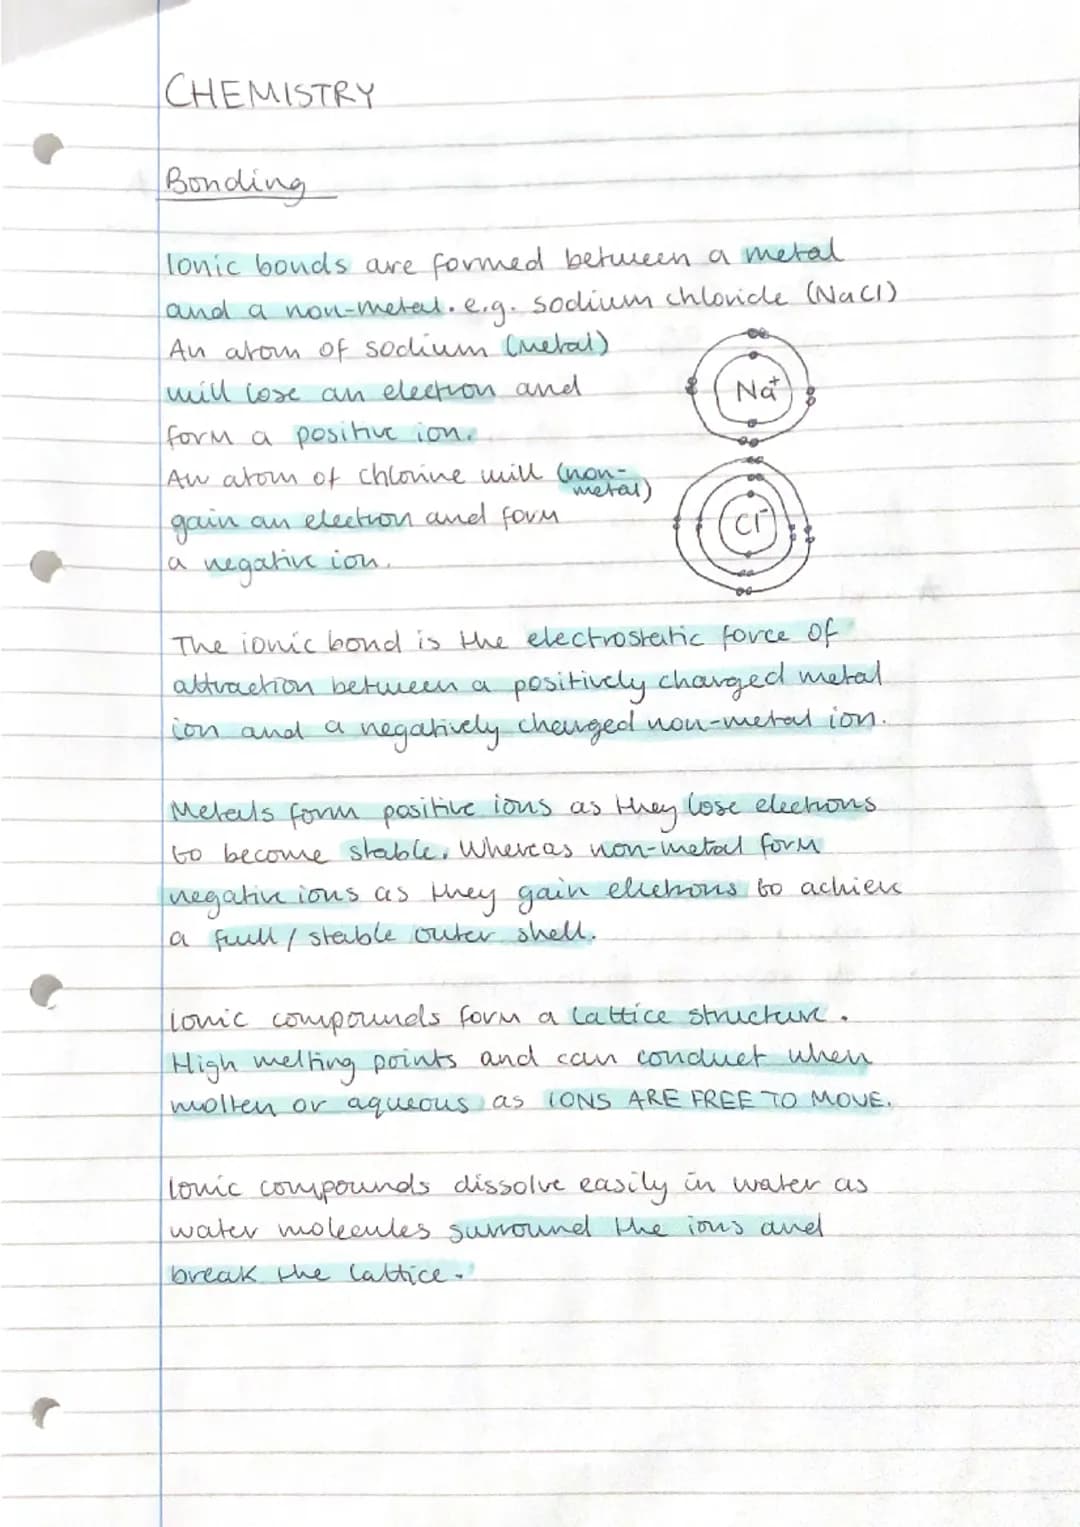 CHEMISTRY
Bonding
Ionic bonds are formed between a metal
and a non-metal. e.g. sodium chloride (NaCl)
An atom of sodium (metal)
will lose an electron and
form a positive ion.
Na+
An atom of chlorine will (non-
metal)
gain an electron and form
a negative ion.
Cl-
The ionic bond is the electrostatic force of
attraction between a positively charged metal
ion and a negatively charged non-metal ion.
Metals form positive ions as they lose electrons
to become stable. Whereas non-metal form
negative ions as they gain electrons to achieve
a full / stable outer shell.
Ionic compounds form a lattice structure.
High melting points and can conduct when
molten or aqueous as IONS ARE FREE TO MOVE.
Ionic compounds dissolve easily in water as
water molecules surround the ions and
break the lattice.